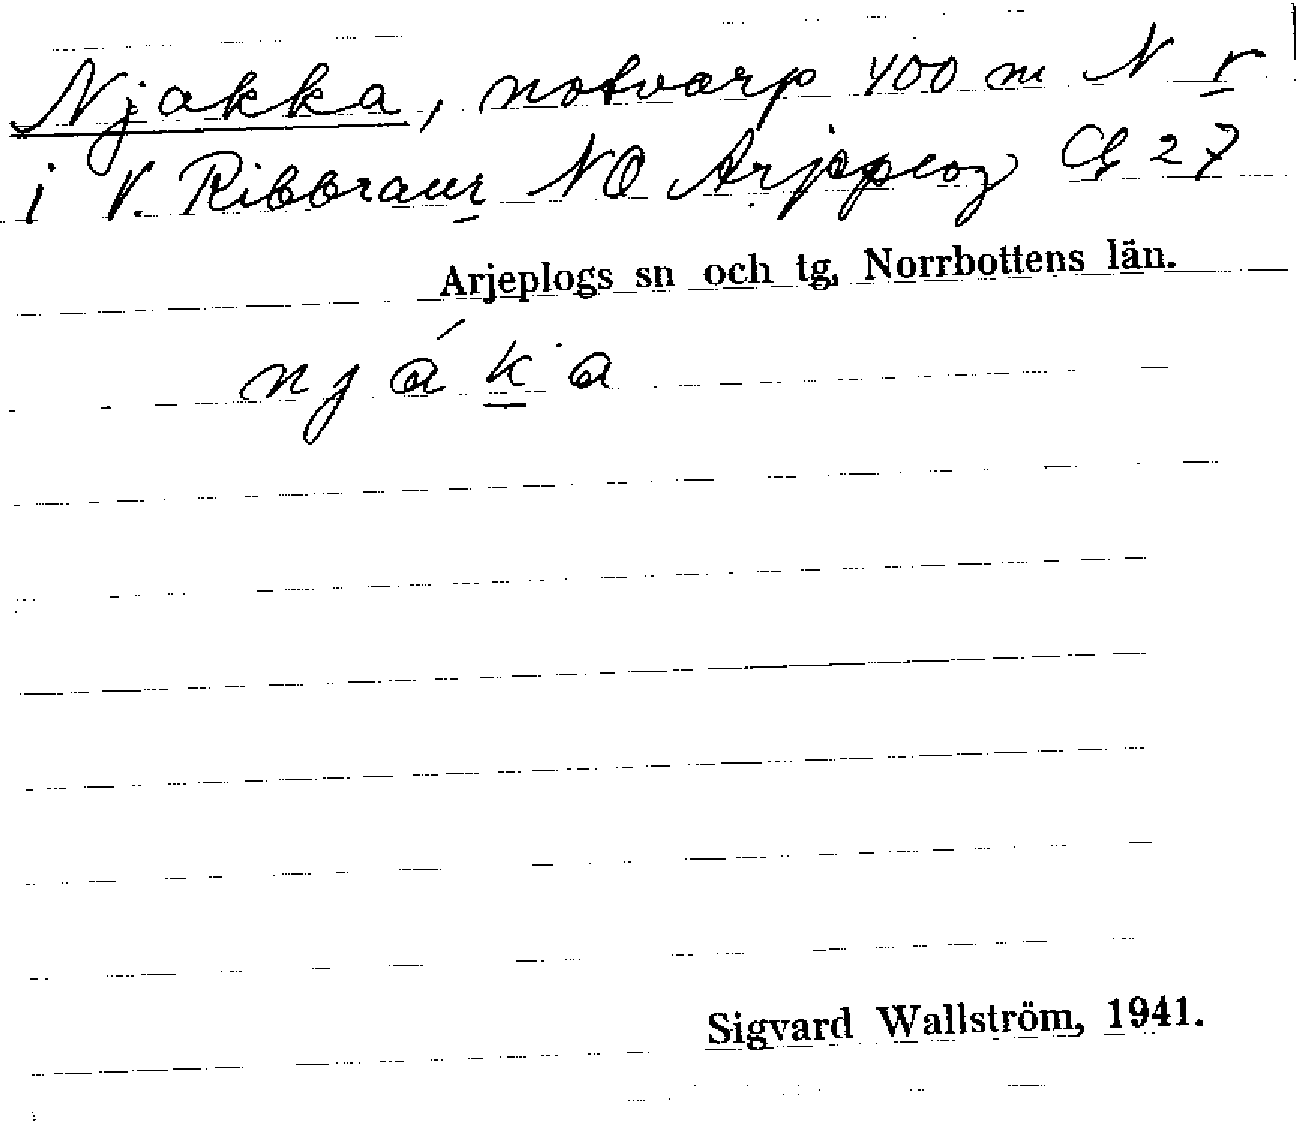 Njakka, notvarp 400 m N r
i V. Ribbraur NO Arjeplog G 27
Arjeplogs sn och tg, Norrbottens län.
njáka
Sigvard Wallström, 1941.